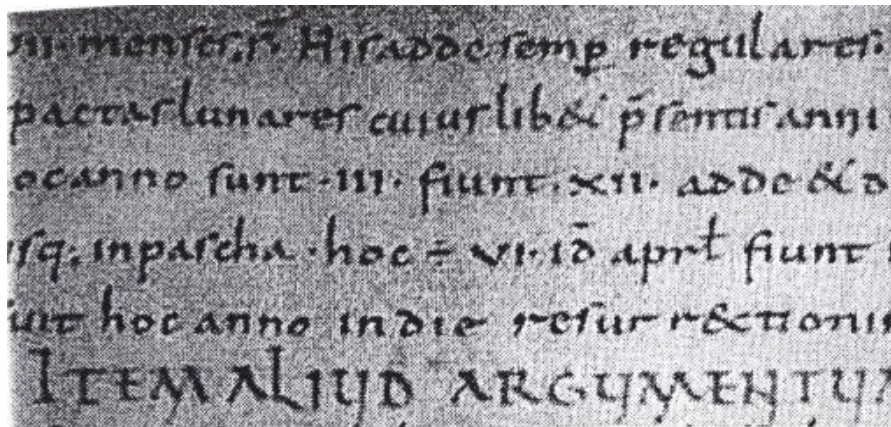 menses s̄. His adde semꝑ regulares.
pactas lunares cuiuslib& p̄sentis anni
oc anno sunt ·iii· fiunt ·xii· adde &
inpascha ·hoc ÷ vi· id̄ aprł fiunt
hoc anno in die resurr&tionis
ITEM ALIUD ARGUMENTUM